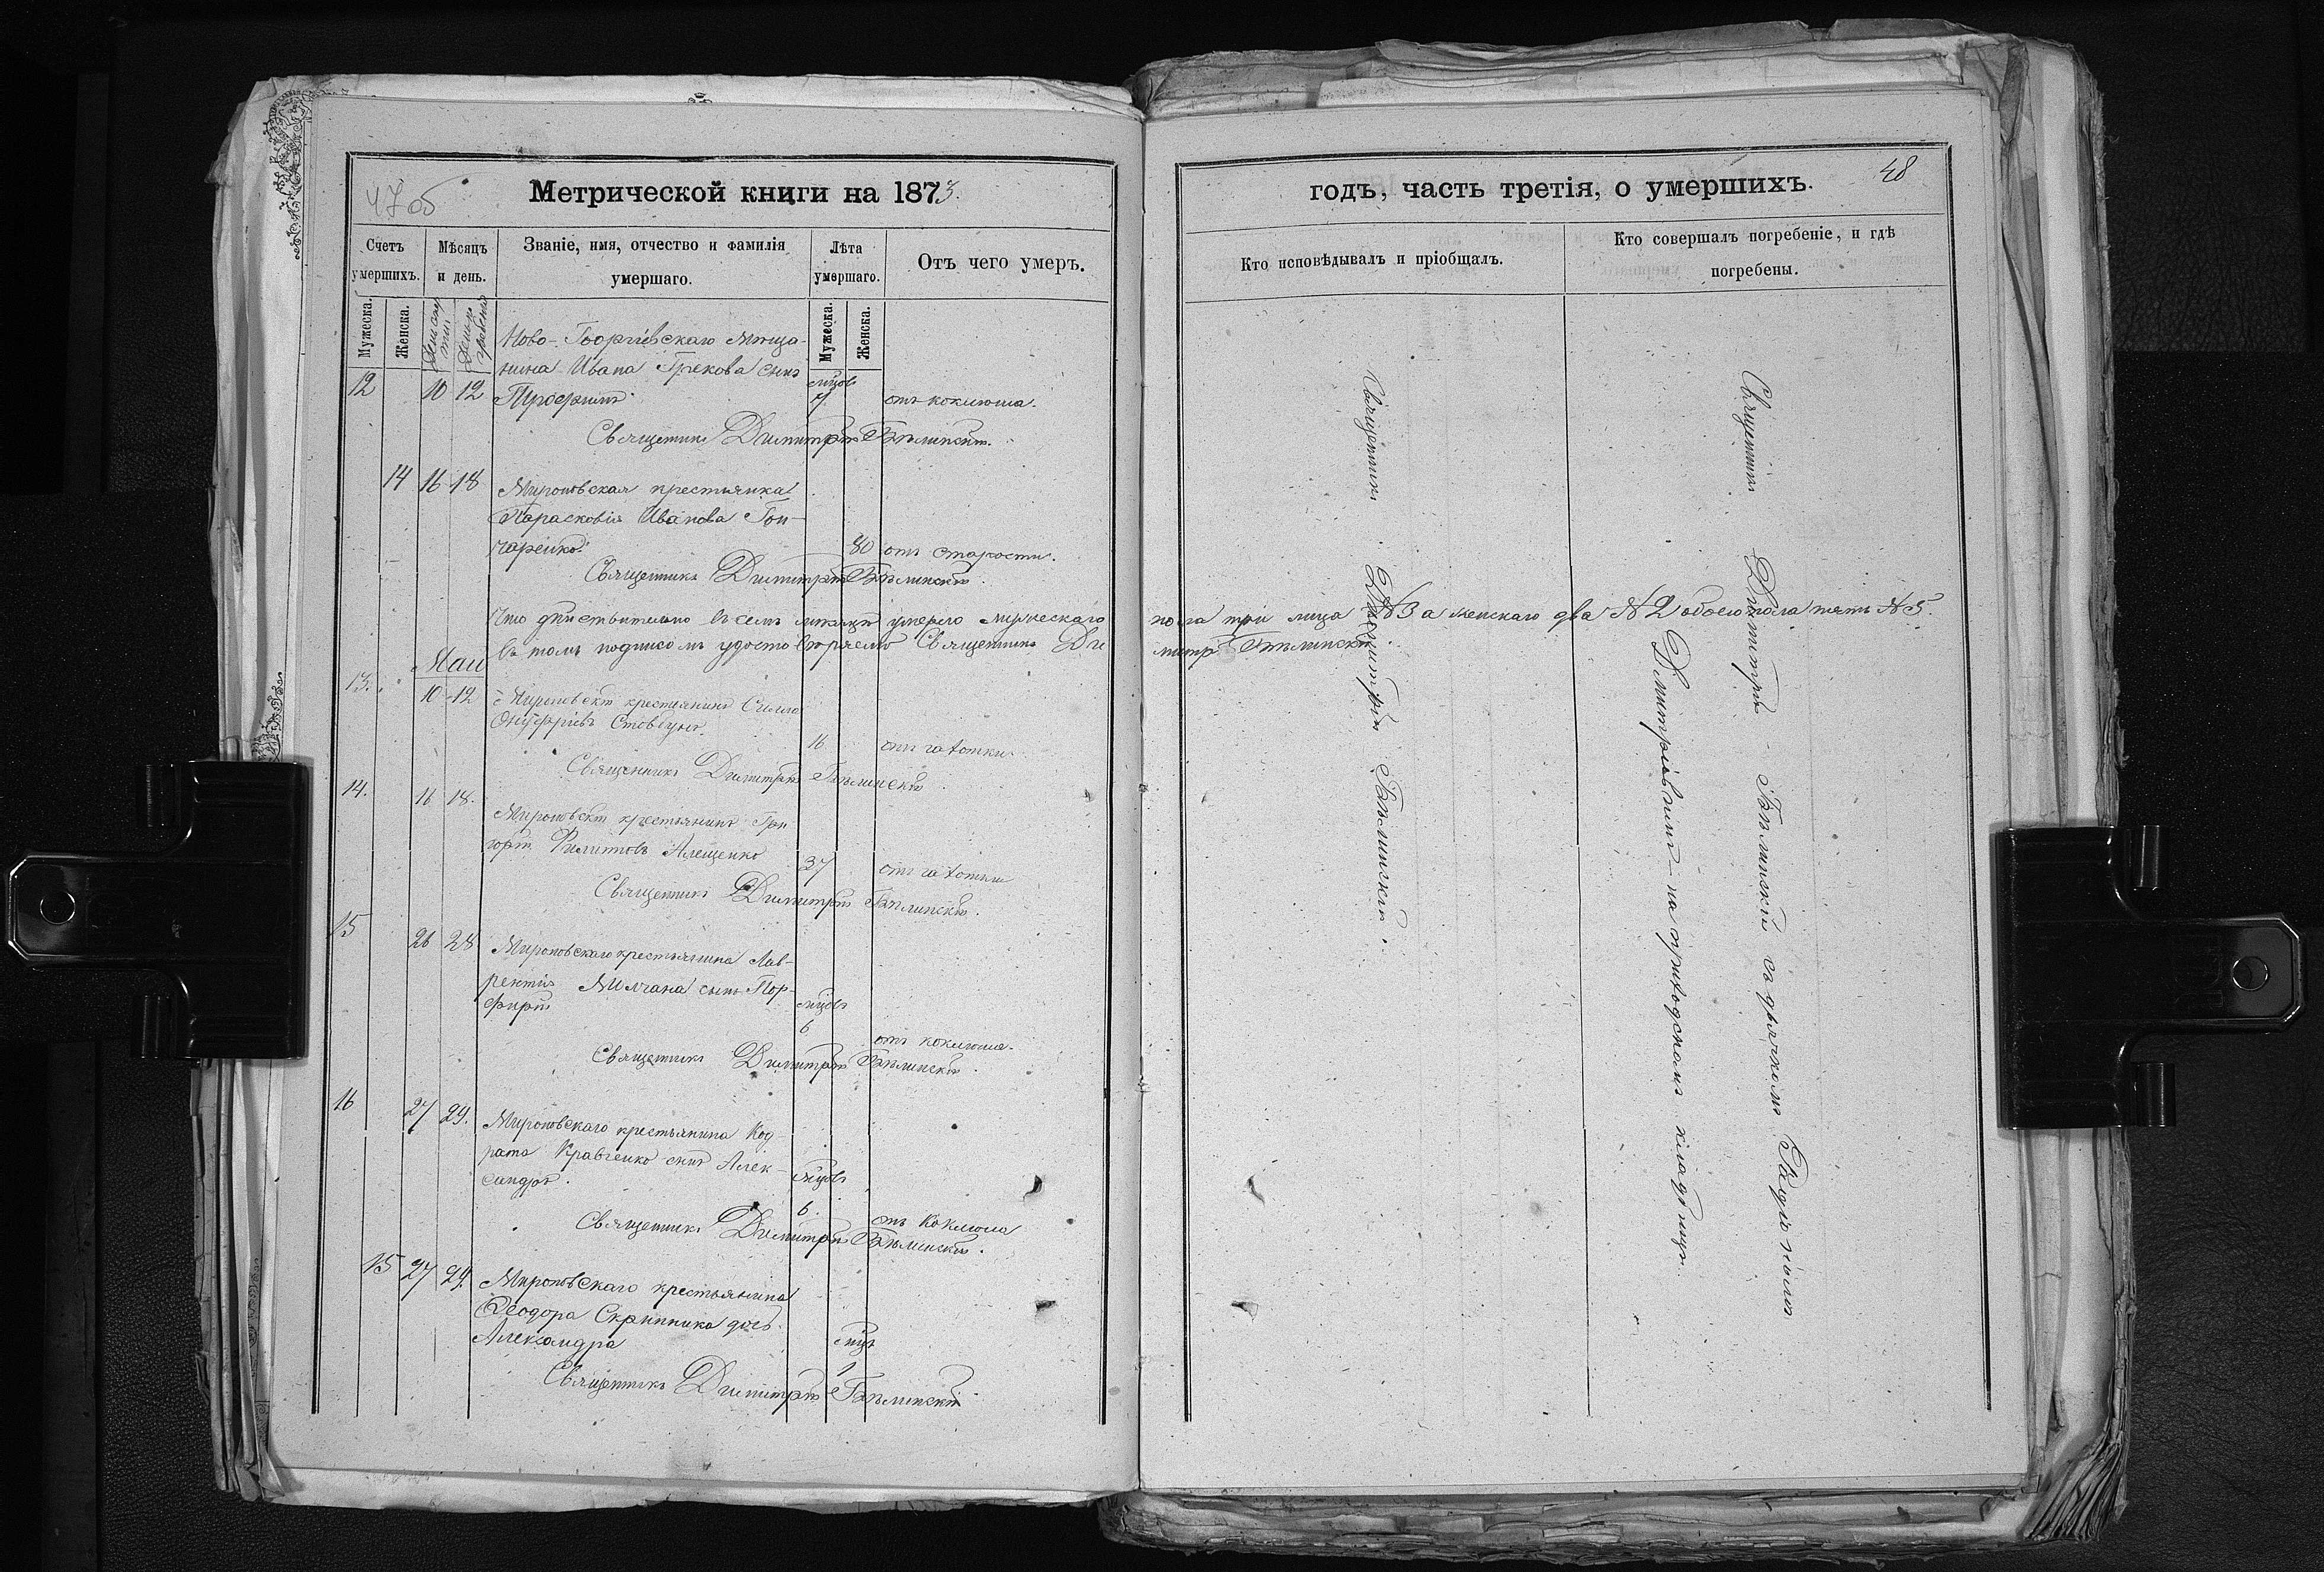 47 об
Метрической книги на 1873.
Счетъ умершихъ.
Мѣсяцъ и день.
Званіе, имя, отчество и фамилія умершаго.
Лѣта умершаго.
Отъ чего умеръ.
Мужеска.
Женска.
Мужеска.
Женска.
Ново-Георгіевскаго мѣща-
нина Ивана Грекова сынъ
12 10 12 Трофимъ. мцовъ 7 отъ коклюша.
Священникъ Димитрій Бѣлинскій.
14 16 18 Мироновская крестьянка
Парасковія Иванова Гон-
чаренко. 80 отъ старости.
Священникъ Димитрій Бѣлинскій.
Что дѣйствительно въ семъ мѣсяцѣ умерло мужескаго пола три лица №3 а женскаго два №2 обоего пола пять №5.
въ томъ подписомъ удостовѣряемъ Священникъ Димитрій Бѣлинскій
Маи
13. 10 12 Мироновскій крестьянинъ
Онуфріевъ Стовбунъ.
16 отъ чахотки
Священникъ Димитрій Бѣлинскій.
14. 16 18. Мироновскій крестьянинъ Гри
горій Филиповъ Алещенко
37 отъ чахотки
Священникъ Димитрій Бѣлинскій.
15 26 28 Мироновскаго крестьянина Лав-
рентія Милчана сынъ Пор-
фирій мцовъ
6 отъ коклюша.
Священникъ Димитрій Бѣлинскій.
16 27 29. Мироновскаго крестьянина Код
рата Кравченко сынъ Алек-
сандръ. мцовъ
6. отъ коклюша
Священникъ Димитрій Бѣлинскій.
15 27 29. Мироновскаго крестьянина
Ѳеодора Скрипника дочь
Александра мцъ
1
Священникъ Димитрій Бѣлинскій
годъ, часть третія, о умершихъ.
48
Кто исповѣдывалъ и пріобщалъ.
Кто совершалъ погребеніе, и гдѣ погребены.
Священникъ Димитрій Бѣлинскій.
Священникъ Димитрій Бѣлинскій съ дьячкомъ
Димитріевымъ на приходскомъ кладбищѣ.